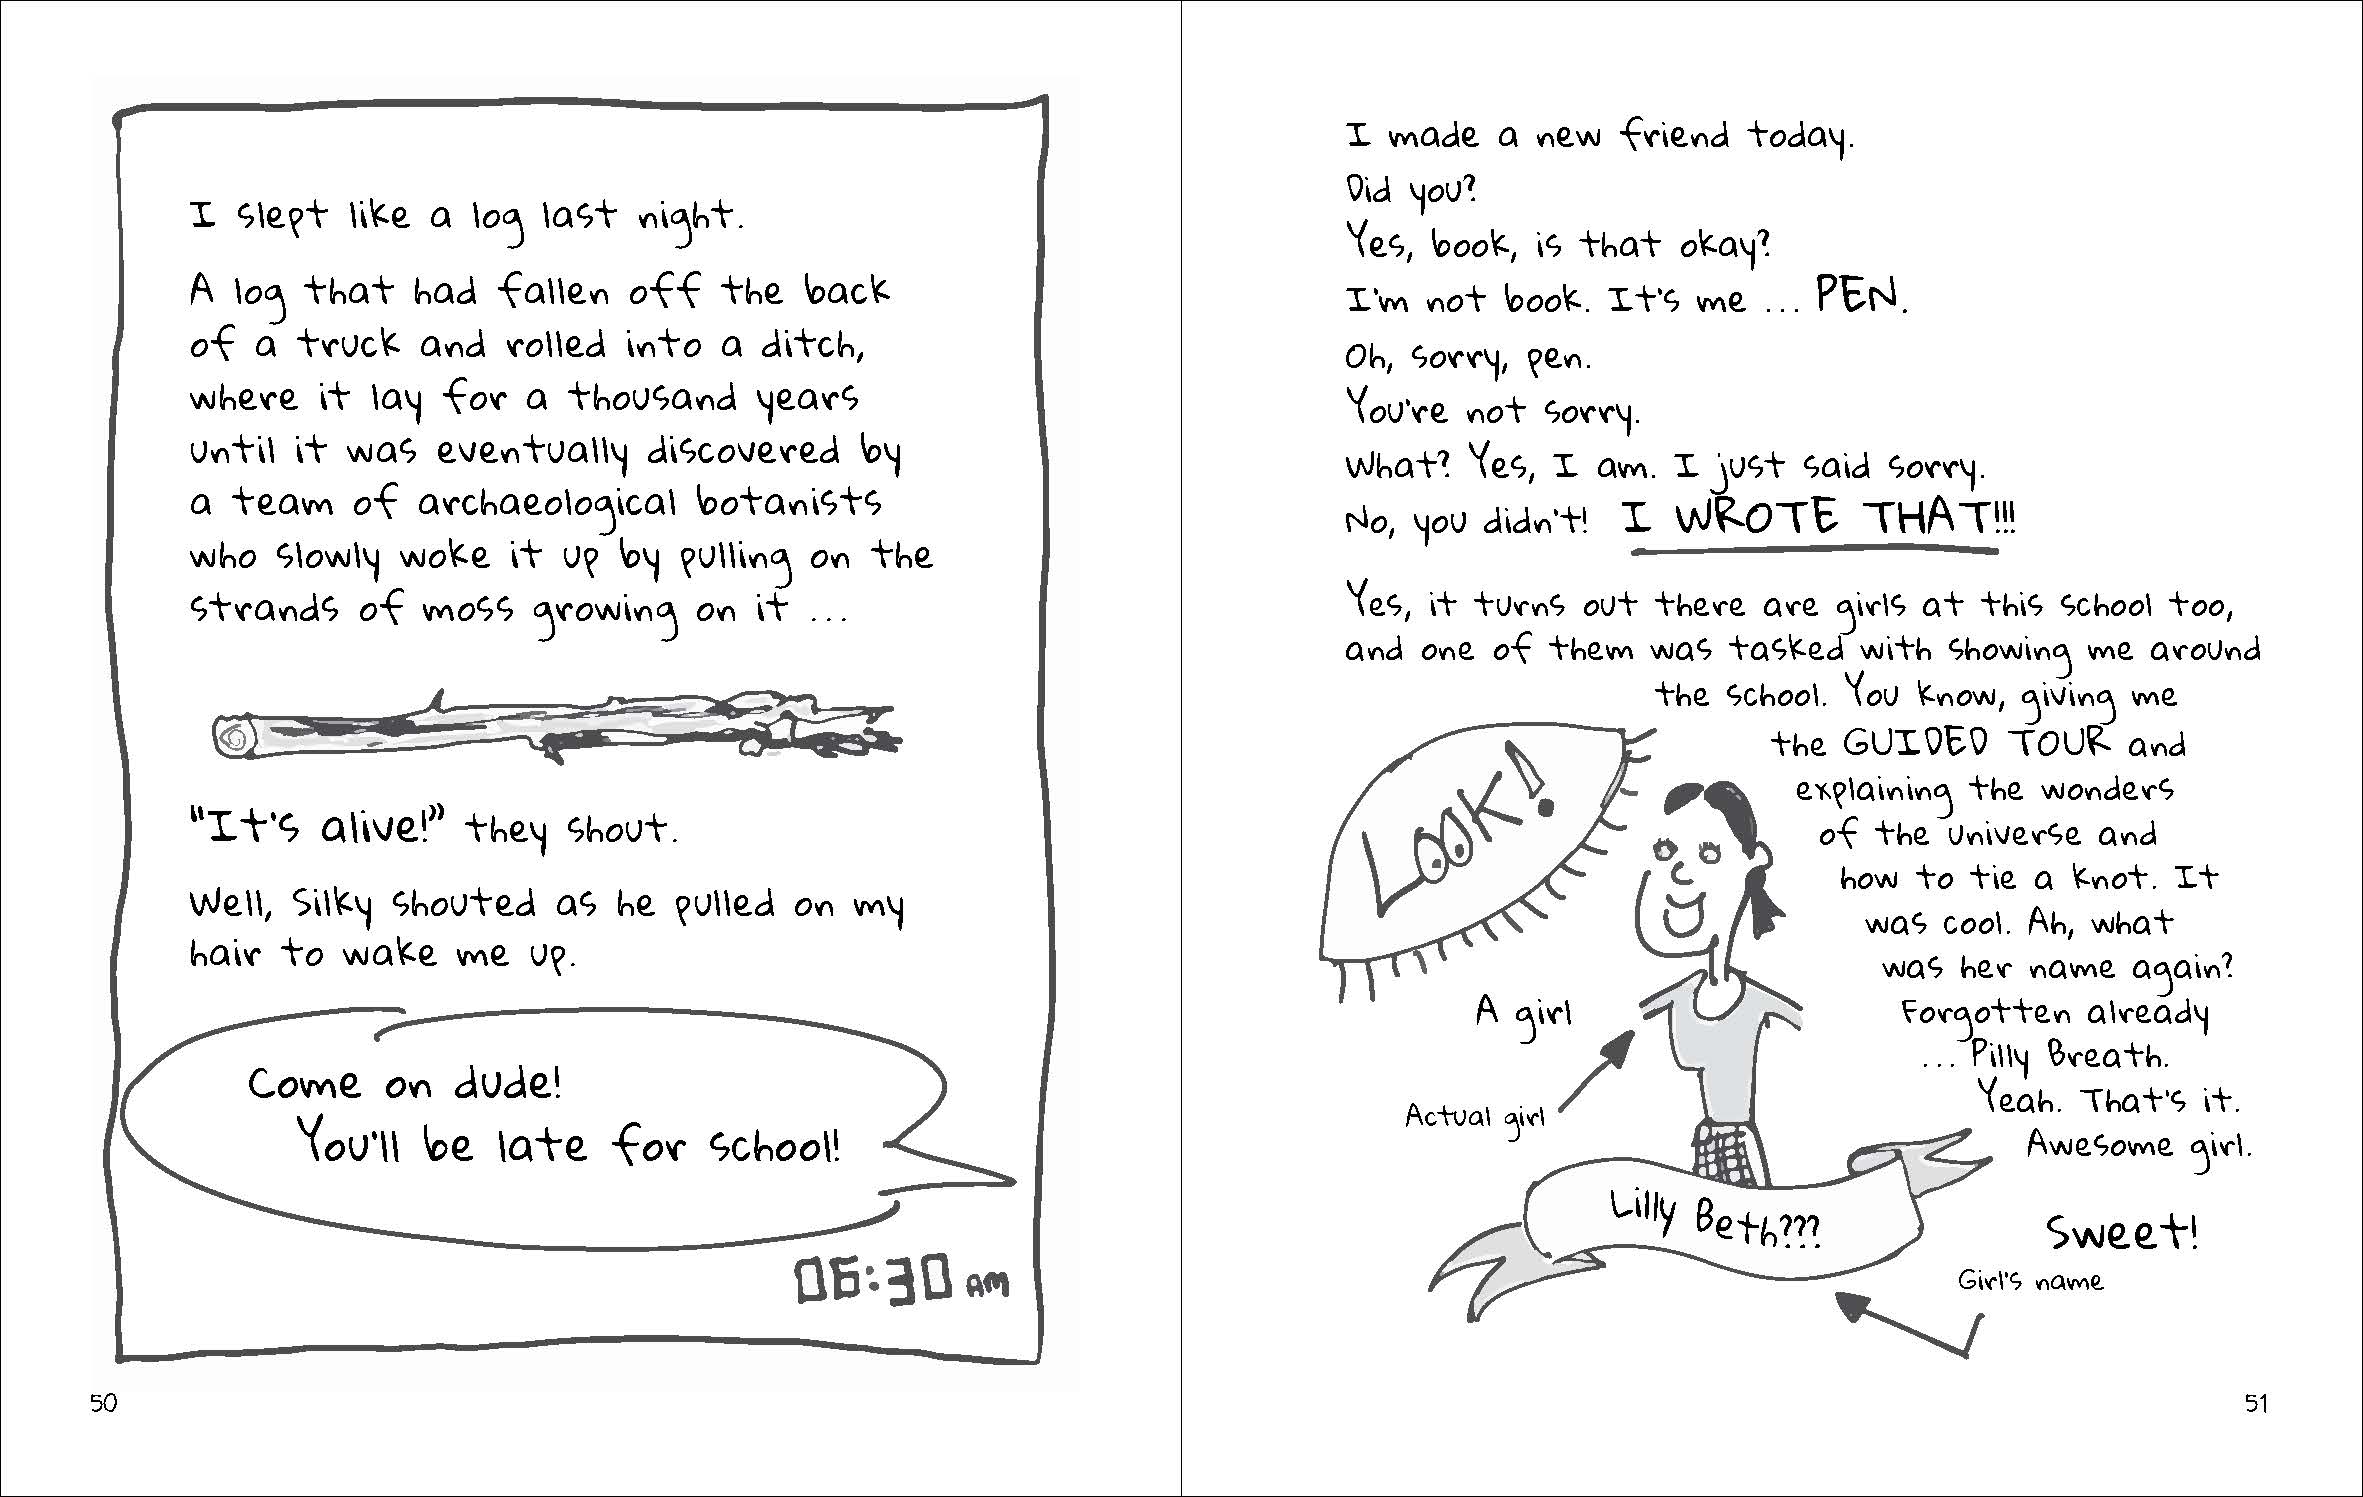 I slept like a log last night.
A log that had fallen off the back
of a truck and rolled into a ditch,
where it lay for a thousand years
until it was eventually discovered by
a team of archaeological botanists
who slowly woke it up by pulling on the
strands of moss growing on it ...
"It's alive!" they shout.
Well, Silky shouted as he pulled on my
hair to wake me up.
Come on dude!
You'll be late for school!
06:30 AM
50
I made a new friend today.
Did you?
Yes, book, is that okay?
I'm not book. It's me ... PEN.
Oh, sorry, pen.
You're not sorry.
What? Yes, I am. I just said sorry.
No, you didn't! I WROTE THAT!!!
Yes, it turns out there are girls at this school too,
and one of them was tasked with showing me around
the school. You know, giving me
the GUIDED TOUR and
explaining the wonders
of the universe and
how to tie a knot. It
was cool. Ah, what
was her name again?
Forgotten already
... Pilly Breath.
Yeah. That's it.
Awesome girl.
Sweet!
LOOK!
A girl
Actual girl
Lilly Beth???
Girl's name
51